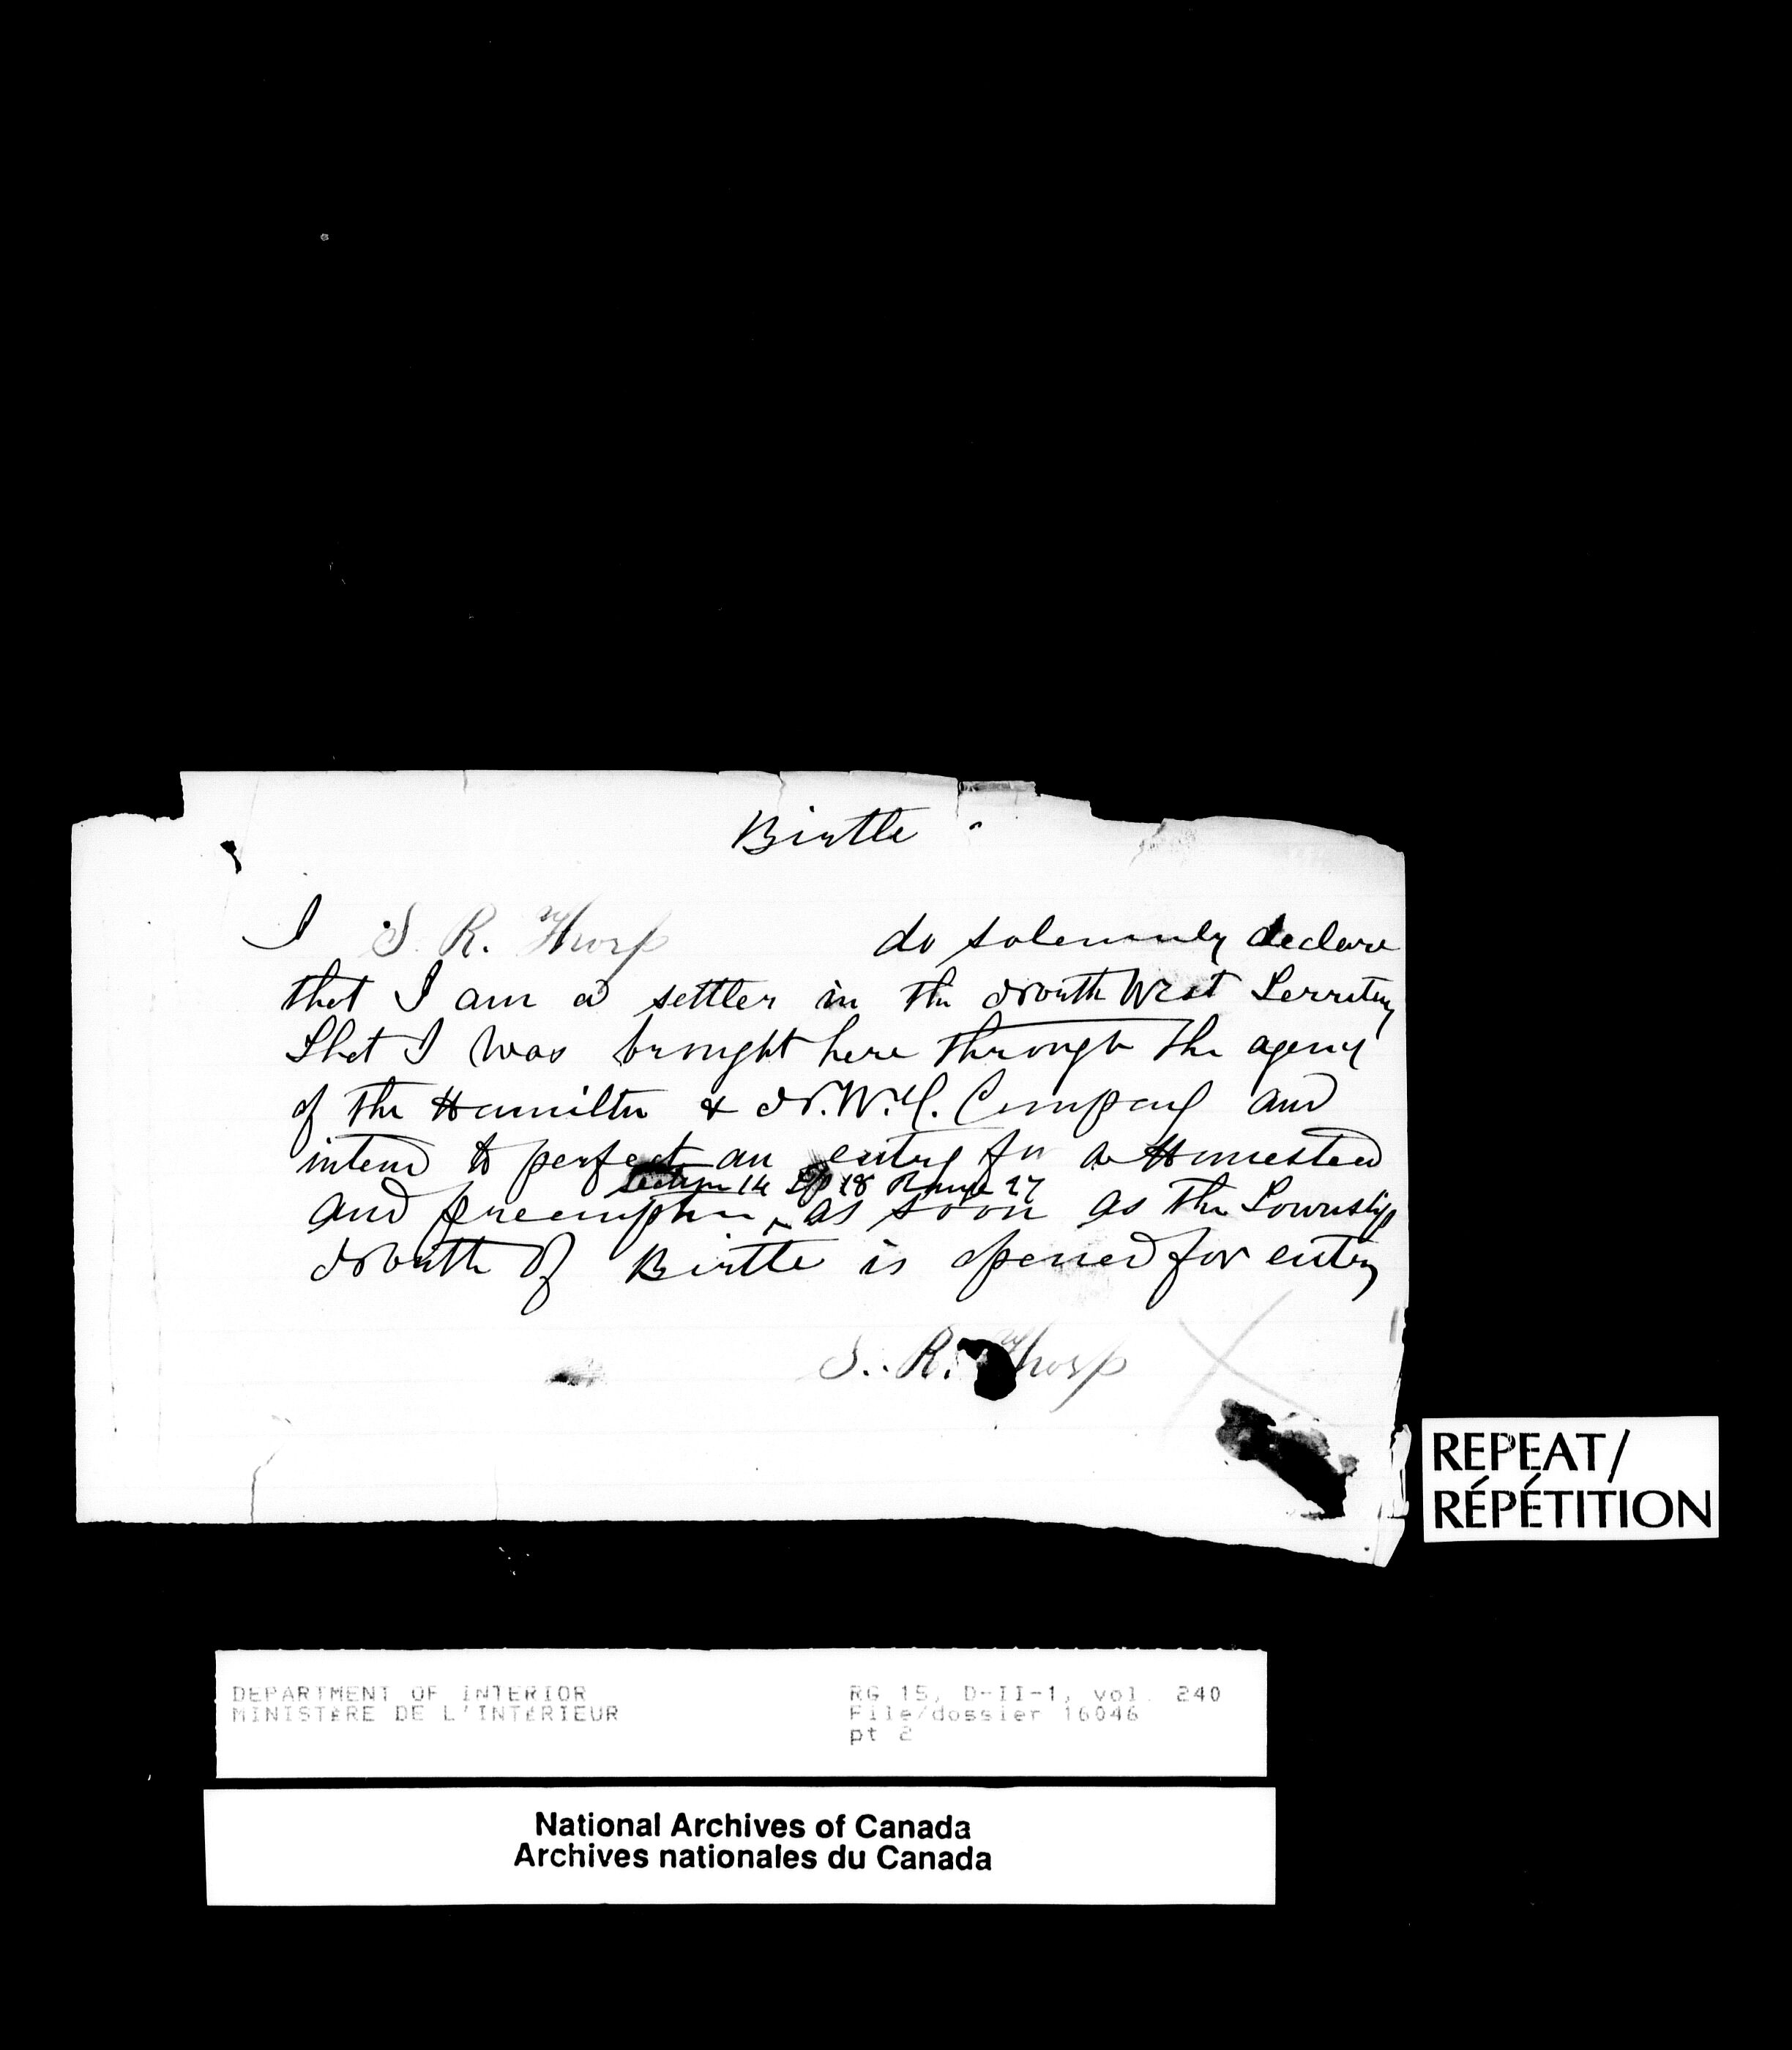 Birtle
I S. R. Thorp do solemnly declare
that I am a settler in the North West Territory
That I was brought here through the agency
of the Hamilton & N.W.C. Company and
intend to perfect an entry for a Homestead
section 14 Tp 18 Range 27
and preemption ‸ as soon as the Township
North of Birtle is opened for entry
S. R. Thorp
REPEAT/
RÉPÉTITION
DEPARTMENT OF INTERIOR
MINISTÈRE DE L'INTÉRIEUR
RG 15, D-II-1, vol. 240
File/dossier 16046
pt 2
National Archives of Canada
Archives nationales du Canada